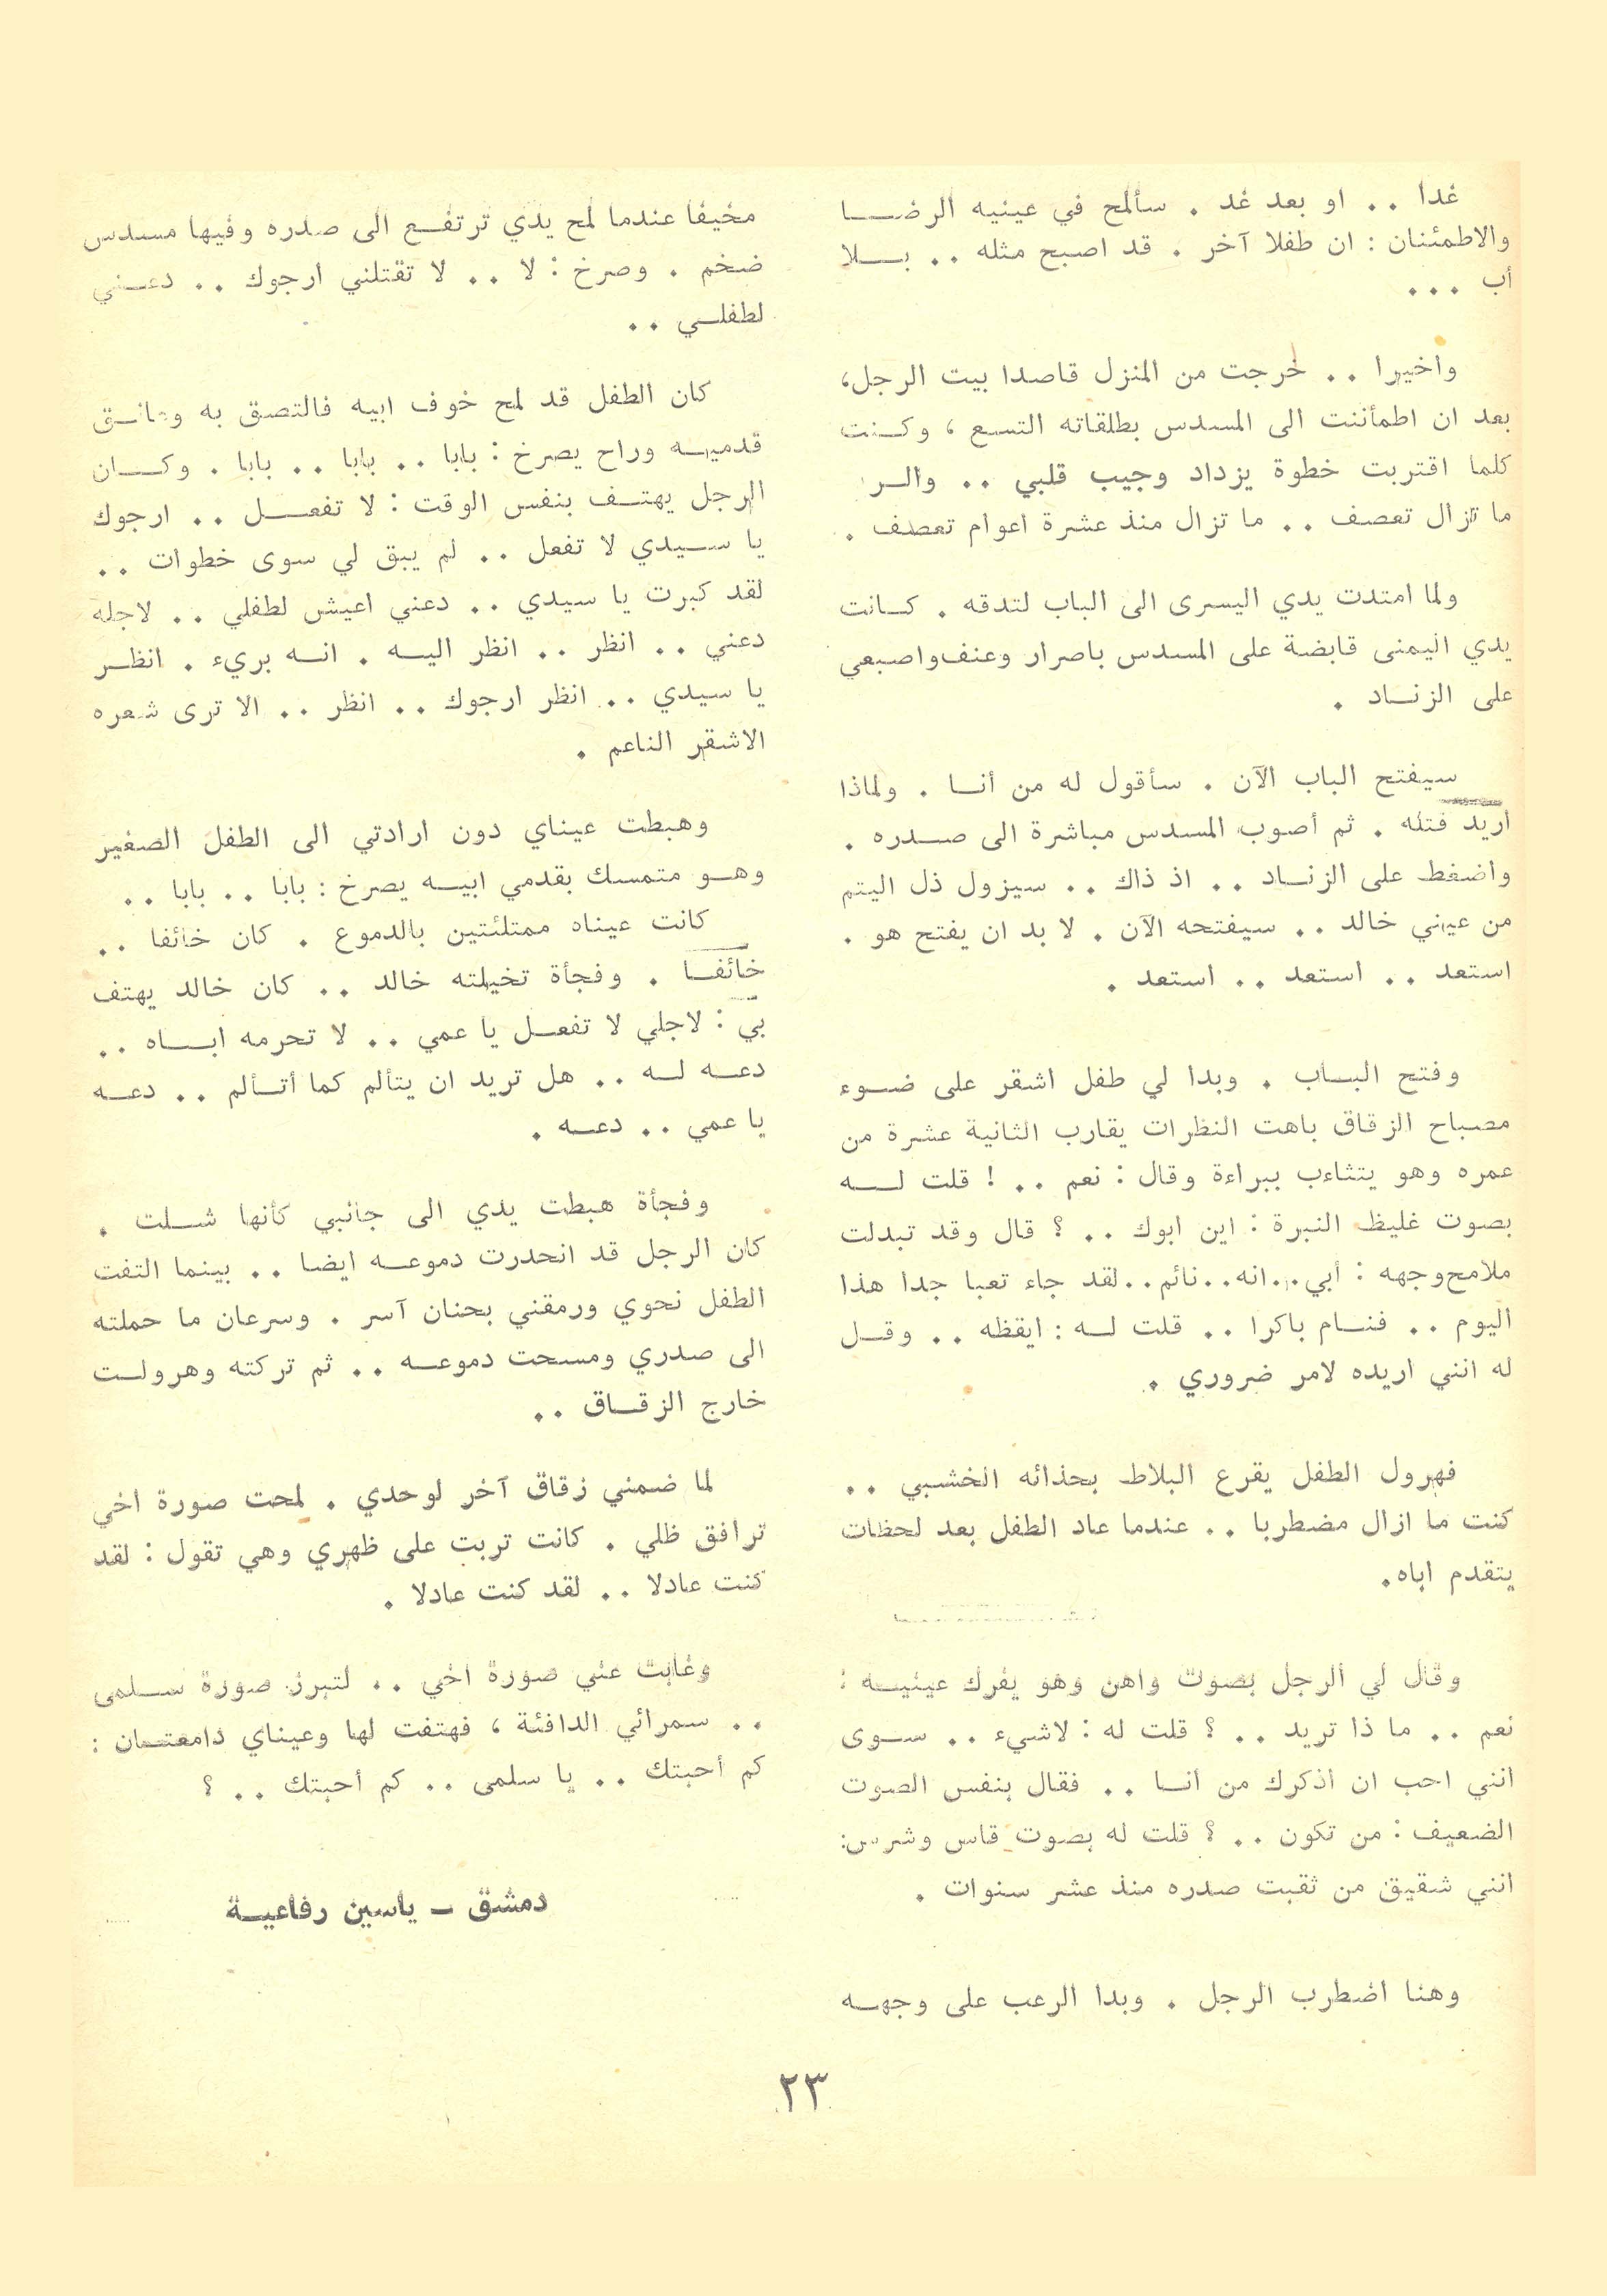 غدا .. او بعد غد . سألمح في عينيه الرضا
والاطمئنان : ان طفلا آخر . قد اصبح مثله .. بلا
أب ...
واخيرا .. خرجت من المنزل قاصدا بيت الرجل،
بعد ان اطمأننت الى المسدس بطلقاته التسع ، وكنت
كلما اقتربت خطوة يزداد وجيب قلبي ..
ما تزال تعصف .. ما تزال منذ عشرة اعوام تعصف .
ولما امتدت يدي اليسرى الى الباب لتدقه . كانت
يدي اليمنى قابضة على المسدس باصرار وعنف واصبعي
على الزناد .
سيفتح الباب الآن . سأقول له من أنا . ولماذا
اريد قتله . ثم أصوب المسدس مباشرة الى صدره .
واضغط على الزناد .. اذ ذاك .. سيزول ذل اليتم
من عيني خالد .. سيفتحه الآن . لا بد ان يفتح هو .
استعد .. استعد .. استعد .
وفتح الباب . وبدا لي طفل اشقر على ضوء
مصباح الزقاق باهت النظرات يقارب الثانية عشرة من
عمره وهو يتثاءب ببراءة وقال : نعم .. ! قلت له
بصوت غليظ النبرة : اين ابوك .. ؟ قال وقد تبدلت
ملامح وجهه : أبي..انه..نائم..لقد جاء تعبا جدا هذا
اليوم .. فنام باكرا .. قلت له : ايقظه .. وقل
له انني اريده لامر ضروري .
فهرول الطفل يقرع البلاط بحذائه الخشبي ..
كنت ما ازال مضطربا .. عندما عاد الطفل بعد لحظات
يتقدم اباه.
وقال لي الرجل بصوت واهن وهو يفرك عينيه :
نعم .. ما ذا تريد .. ؟ قلت له : لاشيء .. سوى
انني احب ان أذكرك من أنا .. فقال بنفس الصوت
الضعيف : من تكون .. ؟ قلت له بصوت قاس وشرس:
انني شقيق من ثقبت صدره منذ عشر سنوات .
وهنا اضطرب الرجل . وبدا الرعب على وجهه
مخيفا عندما لمح يدي ترتفع الى صدره وفيها مسدس
ضخم . وصرخ : لا .. لا تقتلني ارجوك .. دعني
لطفلي ..
كان الطفل قد لمح خوف ابيه فالتصق به وعانق
قدميه وراح يصرخ : بابا .. بابا .. بابا . وكان
الرجل يهتف بنفس الوقت : لا تفعل .. ارجوك
يا سيدي لا تفعل .. لم يبق لي سوى خطوات ..
لقد كبرت يا سيدي .. دعني اعيش لطفلي .. لاجله
دعني .. انظر .. انظر اليه . انه بريء . انظر
يا سيدي .. انظر ارجوك .. انظر .. الا ترى شعره
الاشقر الناعم .
وهبطت عيناي دون ارادتي الى الطفل الصغير
وهو متمسك بقدمي ابيه يصرخ : بابا .. بابا ..
كانت عيناه ممتلئتين بالدموع . كان خائفا ..
خائفا . وفجأة تخيلته خالد .. كان خالد يهتف
بي : لاجلي لا تفعل يا عمي .. لا تحرمه اباه ..
دعه له .. هل تريد ان يتألم كما أتألم .. دعه
يا عمي .. دعه .
وفجأة هبطت يدي الى جانبي كأنها شلت .
كان الرجل قد انحدرت دموعه ايضا .. بينما التفت
الطفل نحوي ورمقني بحنان آسر . وسرعان ما حملته
الى صدري ومسحت دموعه .. ثم تركته وهرولت
خارج الزقاق ..
لما ضمني زقاق آخر لوحدي . لمحت صورة اخي
ترافق ظلي . كانت تربت على ظهري وهي تقول : لقد
كنت عادلا .. لقد كنت عادلا .
وغابت عني صورة اخي .. لتبرز صورة سلمى
.. سمرائي الدافئة ، فهتفت لها وعيناي دامعتان :
كم أحبتك .. يا سلمى .. كم أحبتك .. ؟
دمشق – ياسين رفاعية
٢٣